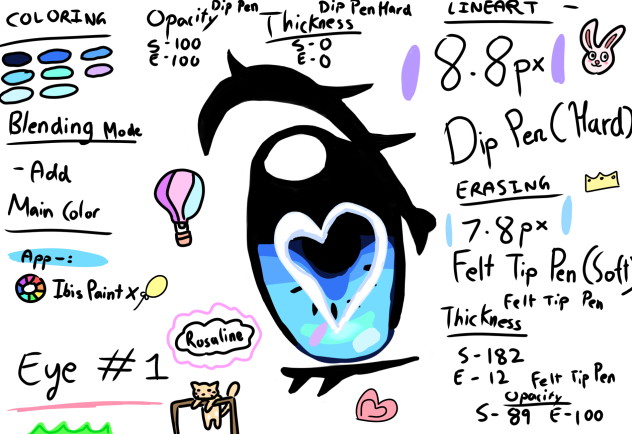 COLORING
Blending Mode
- Add
Main Color
App -:
Ibis Paint X
Eye # 1
Opacity Dip Pen
S - 100
E - 100
Thickness Dip Pen Hard
S - 0
E - 0
Rosaline
LINEART -
8.8px
Dip Pen (Hard)
ERASING
7.8px
Felt Tip Pen (Soft)
Felt Tip Pen
Thickness
S - 182
E - 12 Felt Tip Pen
Opacity
S - 89 E - 100